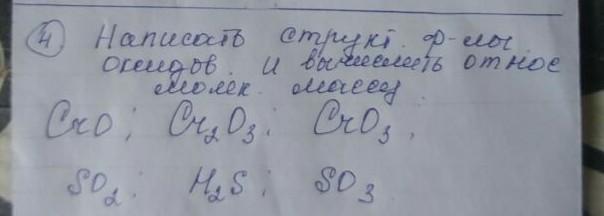 4) Написать структ. ф-лы
оксидов. и вычислить относ
молек. массу
CrO; Cr₂O₃; CrO₃,
SO₂; H₂S; SO₃